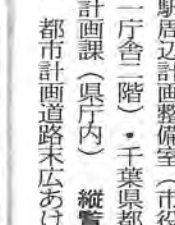 駅周辺計画整備室（市役
一庁舎二階）・千葉県都
計画課（県庁内）　縦覧
都市計画道路末広あけ